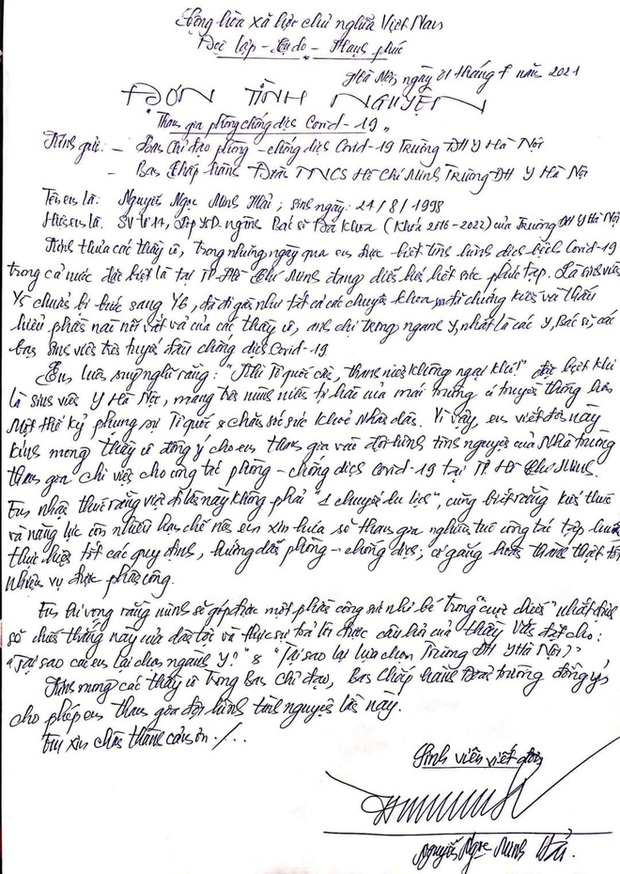 Cộng hòa xã hội chủ nghĩa Việt Nam
Độc lập - Tự do - Hạnh phúc
Hà Nội, ngày 01 tháng 7 năm 2021
ĐƠN TÌNH NGUYỆN
Tham gia phòng chống dịch Covid-19
Kính gửi: - Ban Chỉ đạo phòng - chống dịch Covid-19 Trường ĐH Y Hà Nội
- Ban Chấp hành Đoàn TNCS Hồ Chí Minh Trường ĐH Y Hà Nội
Tên em là: Nguyễn Ngọc Minh Hải; sinh ngày: 24/8/1998
Hiện em là: SV tổ 14, lớp Y5D ngành Bác sĩ Đa khoa (Khóa 2016-2022) của Trường ĐH Y Hà Nội
Kính thưa các thầy cô, trong những ngày qua em được biết tình hình dịch bệnh Covid-19
trong cả nước đặc biệt là tại TP Hồ Chí Minh đang diễn biến hết sức phức tạp. Là sinh viên
Y5 chuẩn bị bước sang Y6, đã đi gần như tất cả các chuyên khoa, em đã chứng kiến và thấu
hiểu phần nào nỗi vất vả của các thầy cô, anh chị trong ngành Y, nhất là các Y, Bác sĩ, các
bạn sinh viên trên tuyến đầu chống dịch Covid-19
Em luôn suy nghĩ rằng: "Khi Tổ quốc cần, thanh niên không ngại khó!" đặc biệt khi
là sinh viên Y Hà Nội, mang trên mình niềm tự hào của mái trường có truyền thống hơn
một thế kỷ phụng sự Tổ quốc & chăm sóc sức khoẻ Nhân dân. Vì vậy, em viết đơn này
kính mong thầy cô đồng ý cho em tham gia vào đội hình tình nguyện của Nhà trường
tham gia chi viện cho công tác phòng - chống dịch Covid-19 tại TP Hồ Chí Minh.
Em nhận thức rằng việc đi lần này không phải "1 chuyến du lịch", cũng biết rằng kiến thức
và năng lực còn nhiều hạn chế nên em xin hứa sẽ tham gia nghiêm túc công tác tập huấn
thực hiện tốt các quy định, hướng dẫn phòng - chống dịch; cố gắng hoàn thành thật tốt
nhiệm vụ được phân công.
Em hi vọng rằng mình sẽ góp được một phần công sức nhỏ bé trong "cuộc chiến" nhất định
sẽ chiến thắng này của dân tộc và thực sự trả lời được câu hỏi của thầy đặt cho:
"Tại sao các em lại chọn ngành Y?" & "Tại sao lại lựa chọn Trường ĐH Y Hà Nội?"
Kính mong các thầy cô trong Ban chỉ đạo, Ban Chấp hành Đoàn trường đồng ý,
cho phép em tham gia đội hình tình nguyện lần này.
Em xin chân thành cảm ơn./.
Sinh viên viết đơn
Nguyễn Ngọc Minh Hải